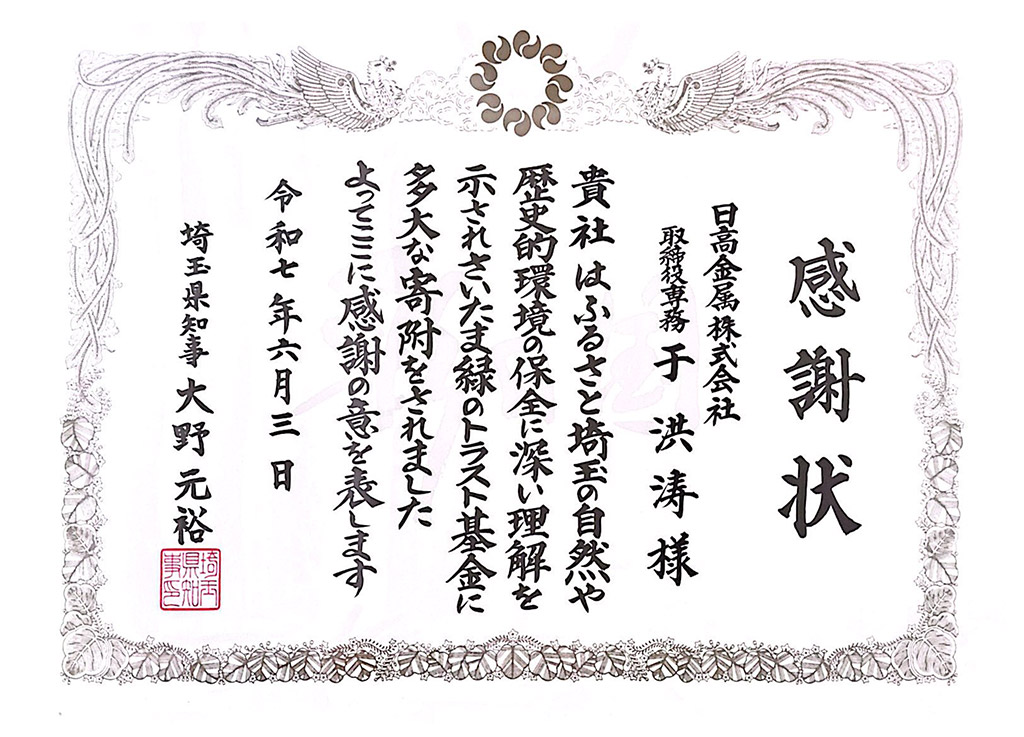 感謝状
日高金属株式会社
取締役専務 于洪涛様
貴社はふるさと埼玉の自然や
歴史的環境の保全に深い理解を
示されさいたま緑のトラスト基金に
多大な寄附をされました
よってここに感謝の意を表します
令和七年六月三日
埼玉県知事 大野元裕
埼玉
県知
事印